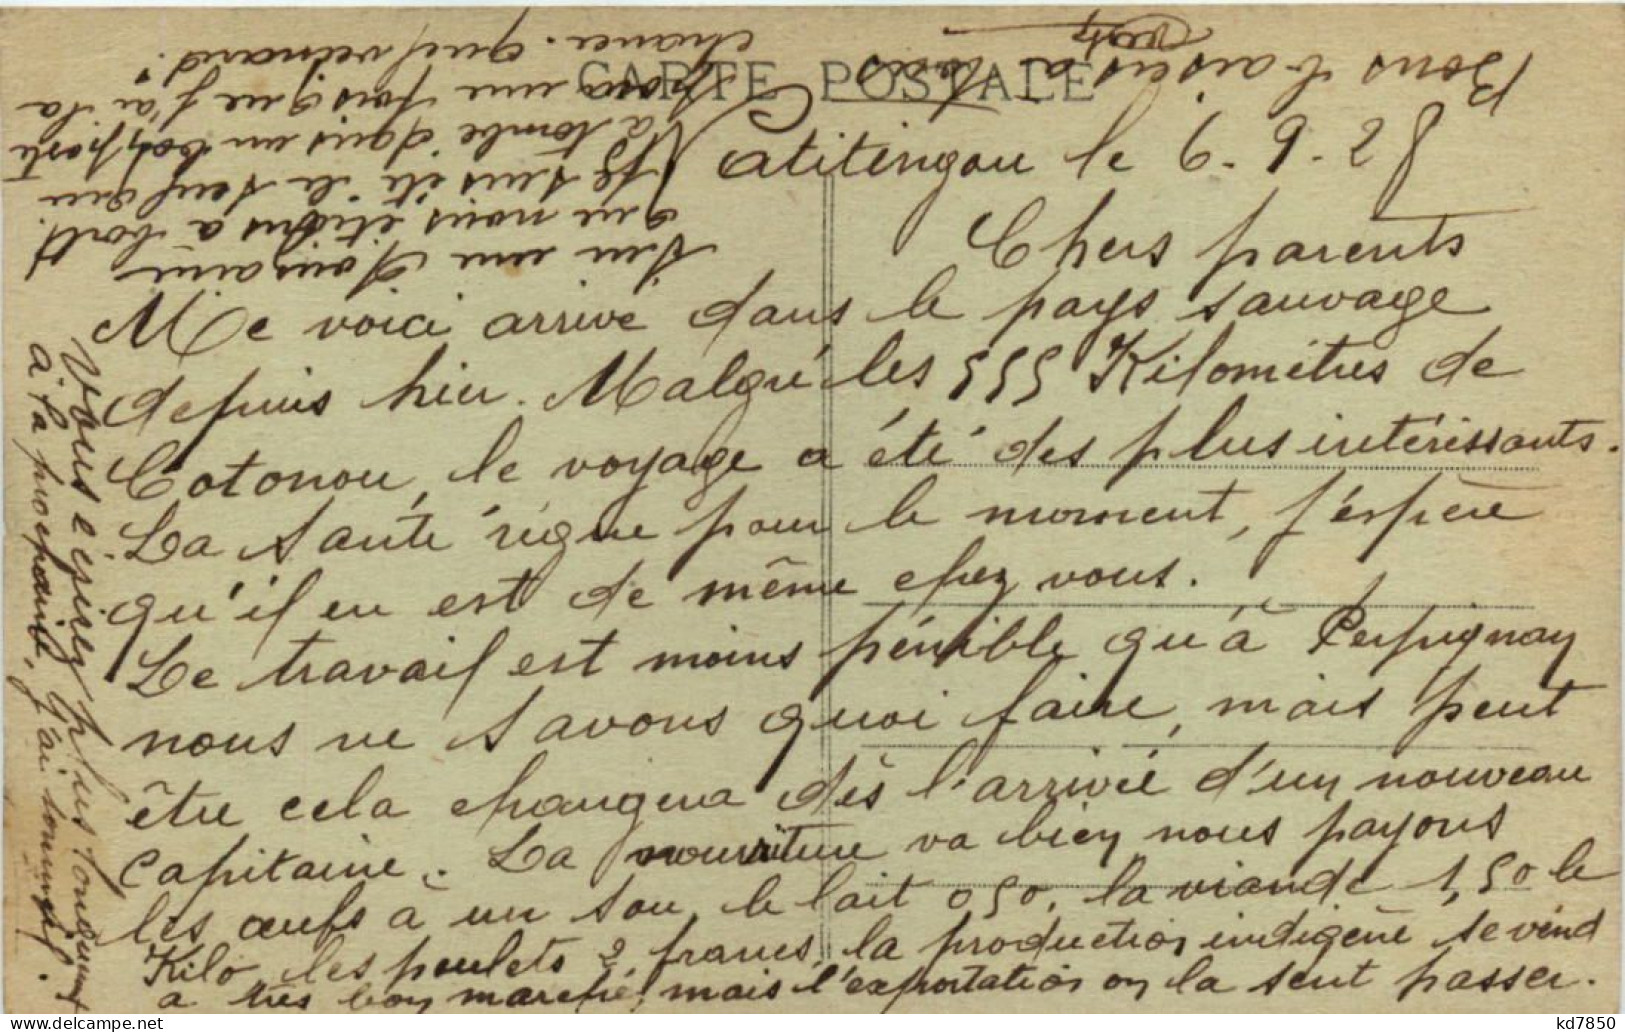 CARTE POSTALE
Natitingou le 6-9-28
Chers parents
Me voici arrivé dans le pays sauvage
depuis hier. Malgré les 555 Kilomètres de
Cotonou, le voyage a été des plus intéressants.
La santé règne pour le moment, j'espère
qu'il en est de même chez vous.
Le travail est moins pénible qu'à Perpignan
nous ne savons quoi faire, mais peut
être cela changera dès l'arrivée d'un nouveau
Capitaine. La nourriture va bien nous payons
les œufs à un sou, le lait 0,50, la viande 1,50 le
Kilo, les poulets 2 francs, la production indigène se vend
a très bon marché, mais l'exportation on la sent passer.
Vous
à la prochaine, j'ai
Sur une douzaine
que nous étions à bord.
Je suis été le seul qui
a tombé dans un bon poste
pour une fois que j'ai la
chance. quel veinard!
Bons baisers à tous